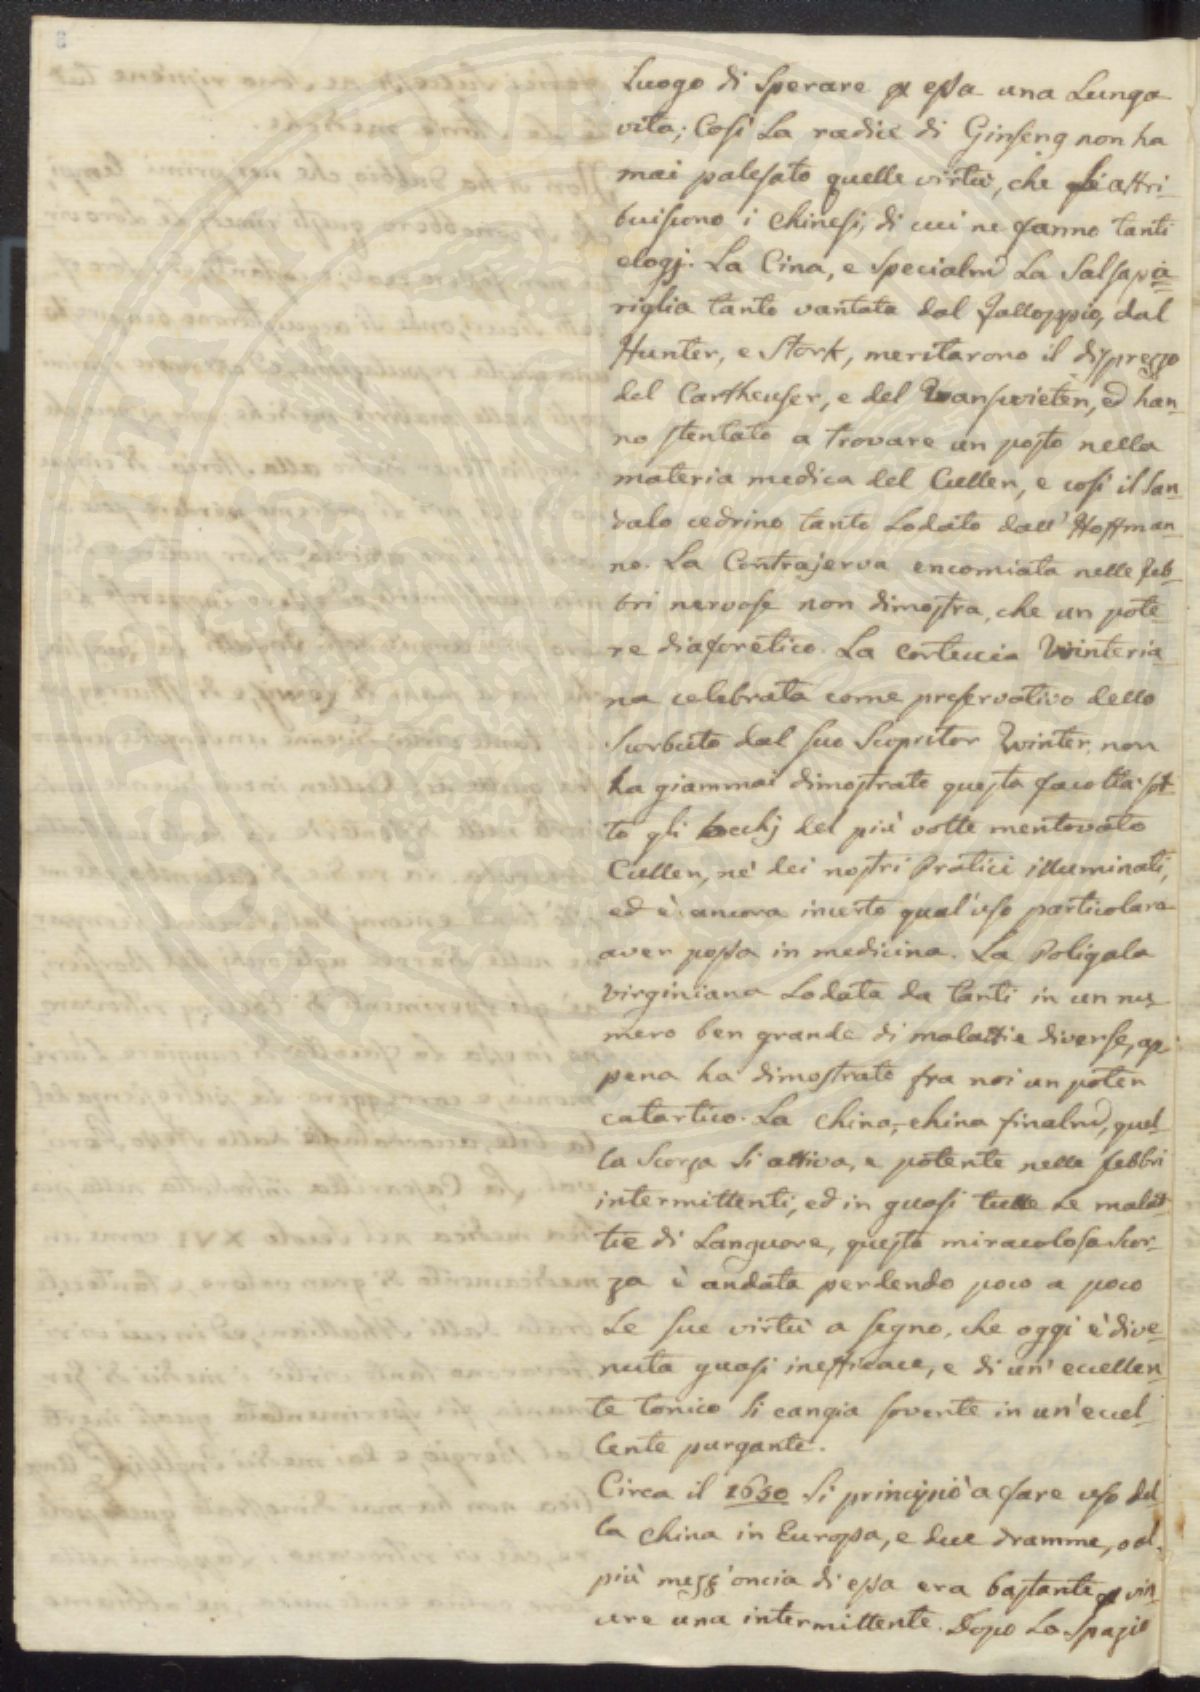 Luogo di Sperare p essa una Lunga
vita; Così La radice di Ginseng non ha
mai palesato quelle virtù, che gli attri-
buiscono i Chinesi, di cui ne fanno tanti
elogj. La Cina, e specialm La Salsapa-
riglia tanto vantata dal Falloppio, dal
Hunter, e Stork, meritarono il disprezzo
del Cartheuser, e del Wanswieten, ed han-
no stentato a trovare un posto nella
materia medica del Cullen, e così il San-
dalo cedrino tanto Lodato dall' Hoffman-
no. La Contrajerva encomiata nelle feb-
bri nervose non dimostra, che un pote-
re diaforetico. La corteccia Winteria-
na celebrata come preservativo dello
Scorbuto dal suo Scopritor Winter, non
ha giammai dimostrato questa facoltà sot-
to gli occhj del più volte mentovato
Cullen, nè dei nostri Pratici illuminati,
ed è ancora incerto qual'uso particolare
aver possa in medicina. La Poligala
Virginiana Lodata da tanti in un nu-
mero ben grande di malattie diverse, ap-
pena ha dimostrato fra noi un poter
catartico. La china-china finalm, quel-
la Scorza Si attiva, e potente nelle febbri
intermittenti, ed in quasi tutte Le malat-
tie di Languore, questa miracolosa Scor-
za è andata perdendo poco a poco
Le sue virtù a segno, che oggi è dive-
nuta quasi inefficace, e di un' eccellen-
te tonico si cangia sovente in un' eccel-
lente purgante.
Circa il 1650 Si principiò a fare uso del-
la China in Europa, e due dramme, o al
più mezz'oncia di essa era bastante p vin-
cere una intermittente. Dopo Lo Spazio